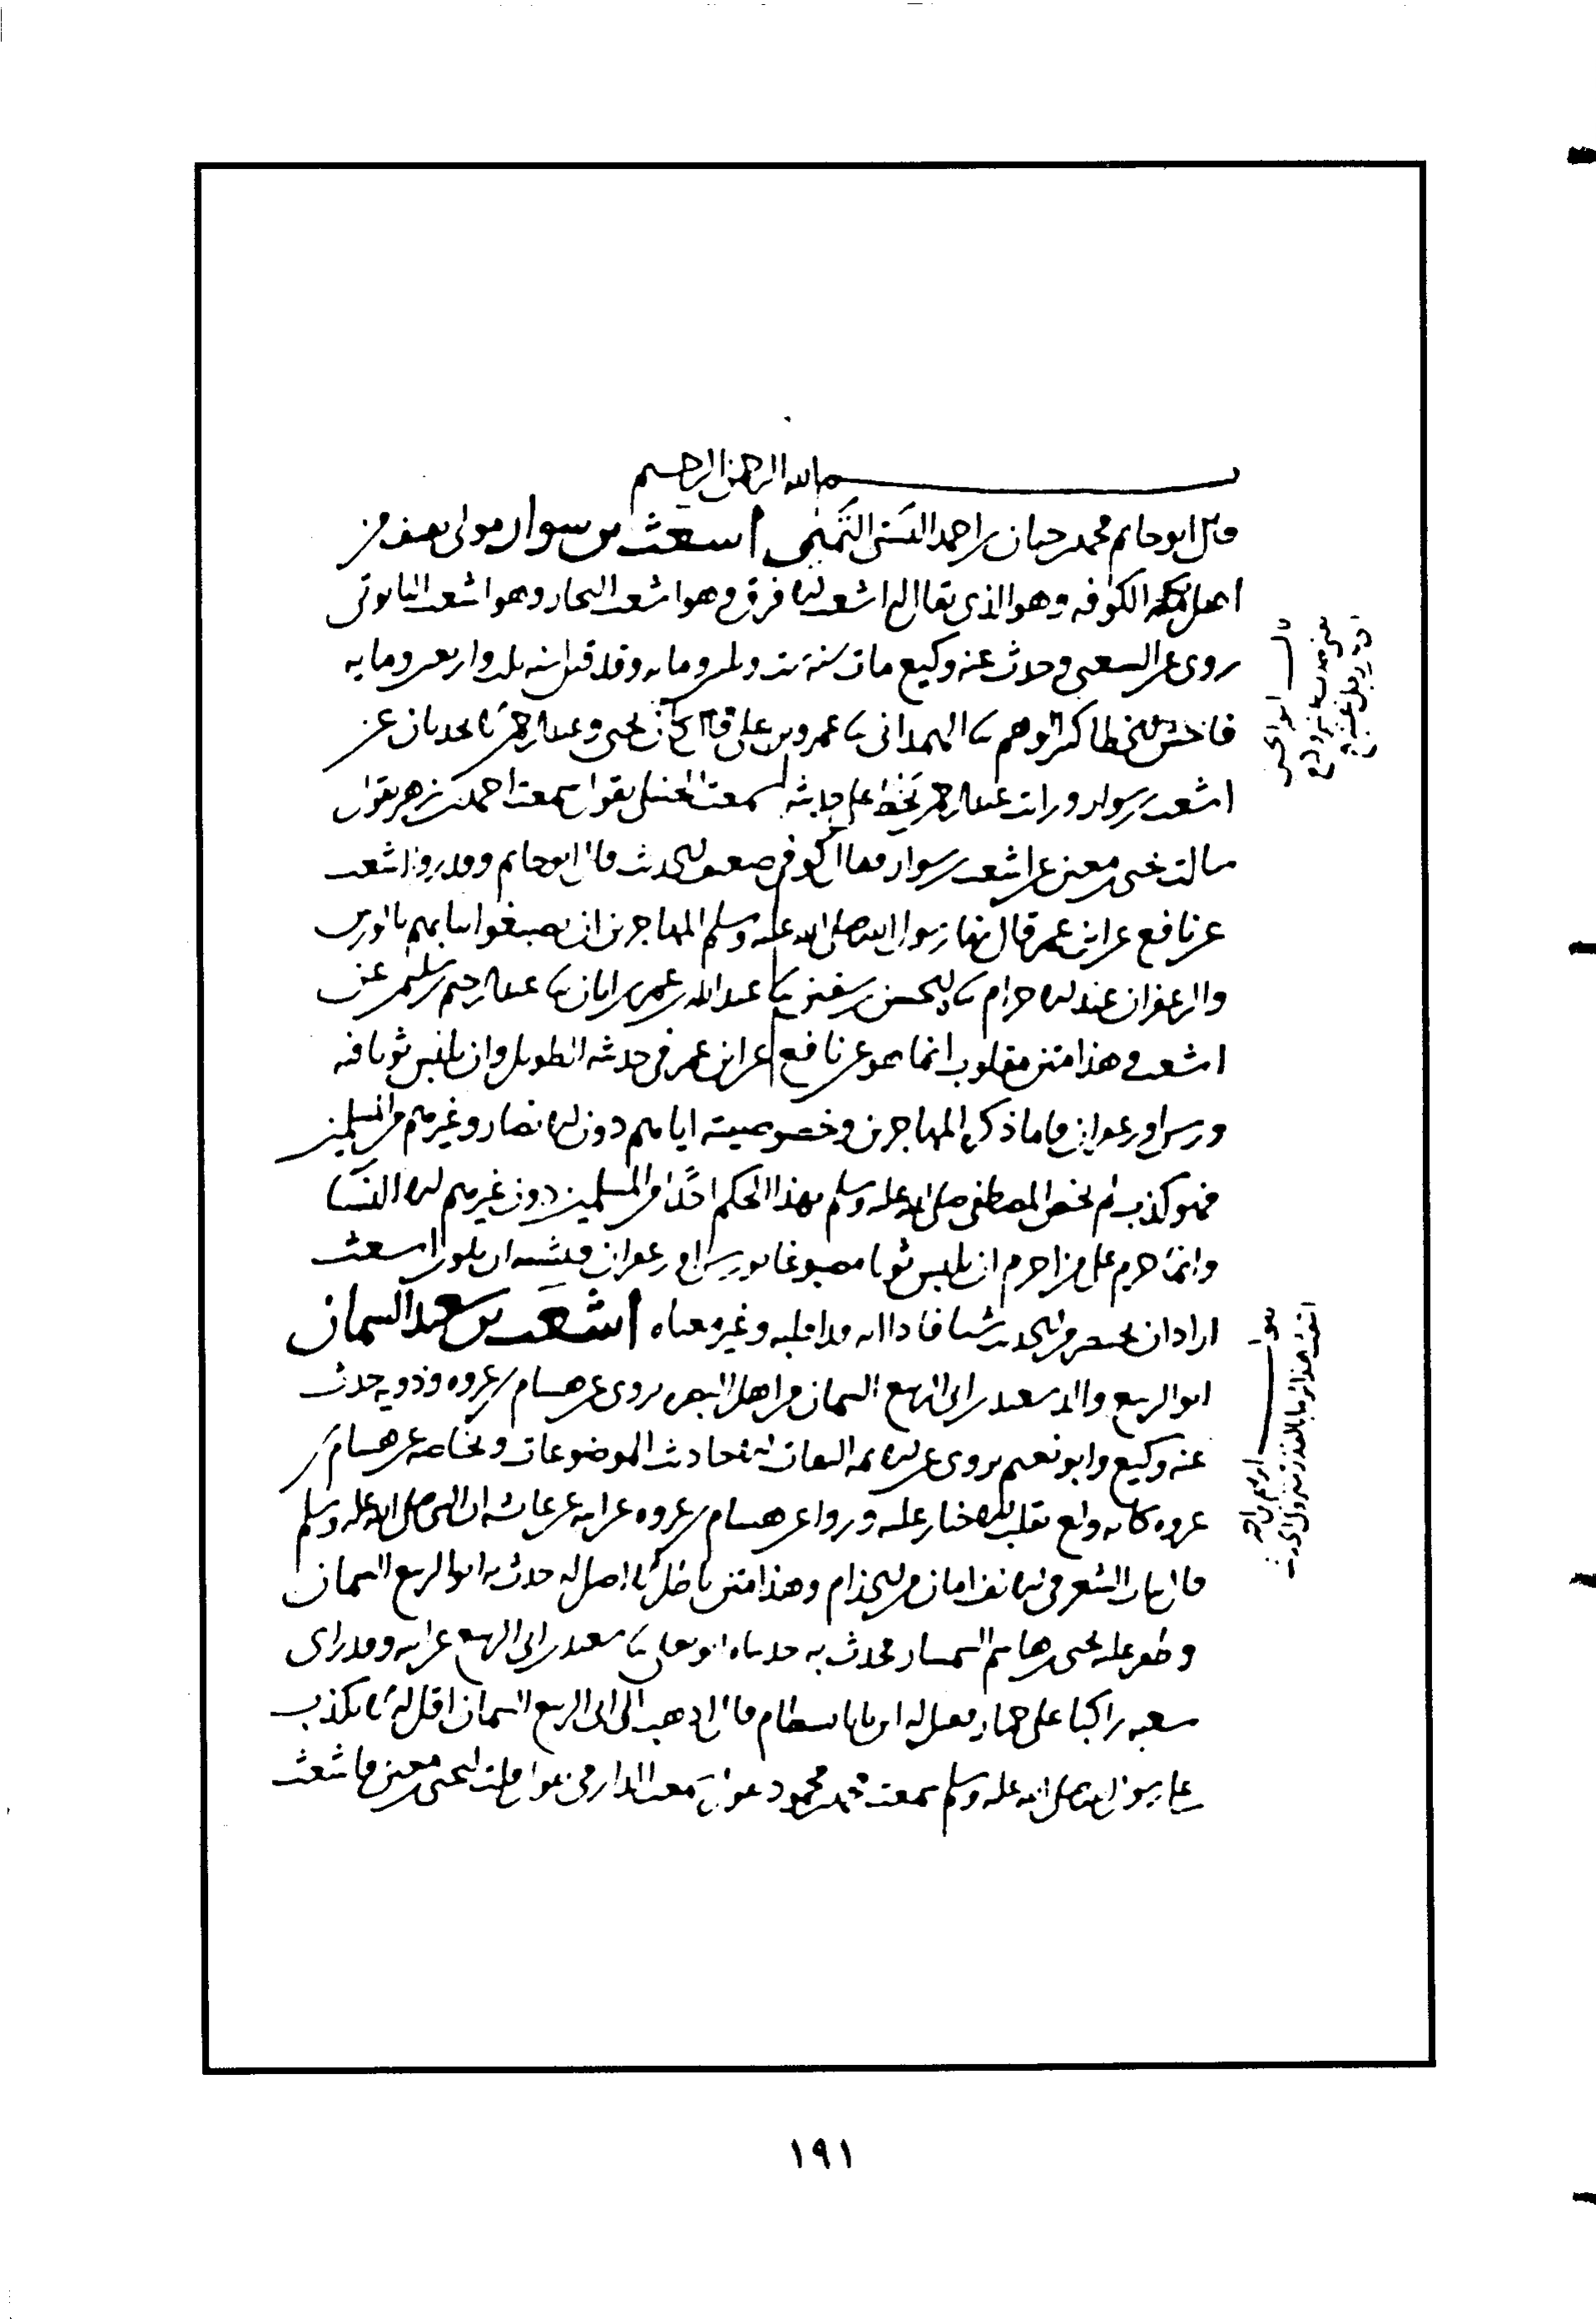 بسم الله الرحمن الرحيم
قال ابو حاتم محمد بن حبان بن احمد البستي التميمي اشعث بن سوار مولى ثقيف من
اهل الكوفه وهو الذي يقال له اشعث الافرق وهو اشعث النجار وهو اشعث التابوتي
روى عن الشعبي وحدث عنه وكيع مات سنة ست وثلثين ومايه وقد قيل سنه ثلث واربعين ومايه
فاحش الخطا كثير الوهم الهمداني عمرو بن علي قال كان يحيى وعبد الرحمن لا يحدثان عن
اشعث بن سوار ورايت عبد الرحمن يخط على حديثه سمعت الحنبلي يقول سمعت احمد بن زهير يقول
سالت يحيى بن معين عن اشعث بن سوار فقال كوفي ضعيف الحديث قال ابو حاتم وقد روى اشعث
عن نافع عن ابن عمر قال نها رسول الله صلى الله عليه وسلم المهاجرين ان يصبغوا ثيابهم بالورس
والزعفران عند الاحرام الحسن بن سفين عبد الله بن عمر بن ابان عبد الرحيم بن سليمن عن
اشعث وهذا متن مقلوب انما هو عن نافع عن ابن عمر في حديثه الطويل وان يلبس ثوبا فيه
ورس او زعفران فاما ذكر المهاجرين وخصوصيته اياهم دون الانصار وغيرهم من المسلمين
فهو كذب لم يخص المصطفى صلى الله عليه وسلم بهذا الحكم احدا من المسلمين دون غيرهم الا النسا
وانما حرم على من احرم ان يلبس ثوبا مصبوغا بورس او زعفران فيشبه ان يكون اشعث
اراد ان يختصر من الحديث شيا فاذا انه قد قلبه وغير معناه اشعث بن سعيد السمان
ابو الربيع والد سعيد بن ابي الربيع السمان من اهل البصره يروى عن هشام بن عروه وذويه حدث
عنه وكيع وابو نعيم يروى عن الايمه الثقات الاحاديث الموضوعات وبخاصه عن هشام بن
عروه كانه ولع بقلب الاخبار عليه وروا عن هشام بن عروه عن ابيه عن عائشه ان النبي صلى الله عليه وسلم
قال نبات الشعر في الانف امان من الجذام وهذا متن باطل لا اصل له حدث به ابو الربيع السمان
وظفر عليه يحيى بن هاشم السمسار فحدث به حدثناه ابو يعلى سعيد بن ابي الربيع عن ابيه وقد راى
شعبه راكبا على حمار فقيل له اين يا با بسطام قال اذهب الى ابي الربيع السمان اقول له لا تكذب
على رسول الله صلى الله عليه وسلم سمعت محمد بن محمود يقول سمعت الدارمي يقول قلت ليحيى بن معين فاشعث
١٩١